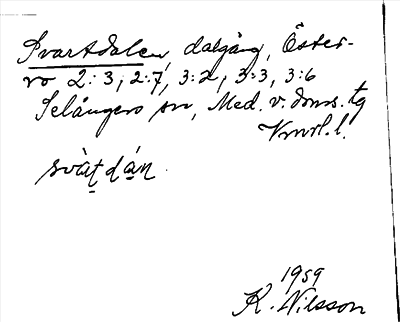 Svartdalen, dalgång, Öster-
ro 2:3, 2:7, 3:2, 3:3, 3:6
Selångers sn, Med. v. doms. tg
Vnrl. l.
svàt̯dá̤n
1959
K. Nilsson